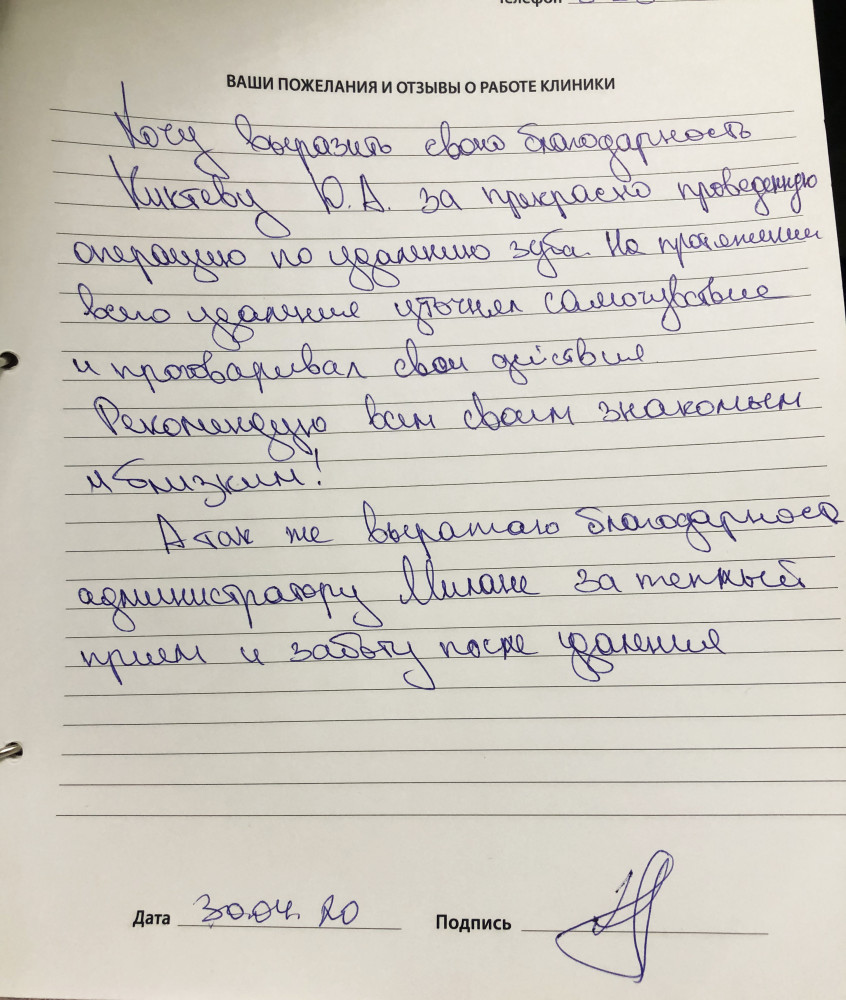 Телефон
ВАШИ ПОЖЕЛАНИЯ И ОТЗЫВЫ О РАБОТЕ КЛИНИКИ
Хочу выразить свою благодарность
Киктеву Ю.А. за прекрасно проведенную
операцию по удалению зуба. На протяжении
всего удаления уточнял самочувствие
и проговаривал свои действия
Рекомендую всем своим знакомым
и близким!
А так же выражаю благодарность
администратору Милане за теплый
прием и заботу после удаления
Дата 30.04.20 Подпись